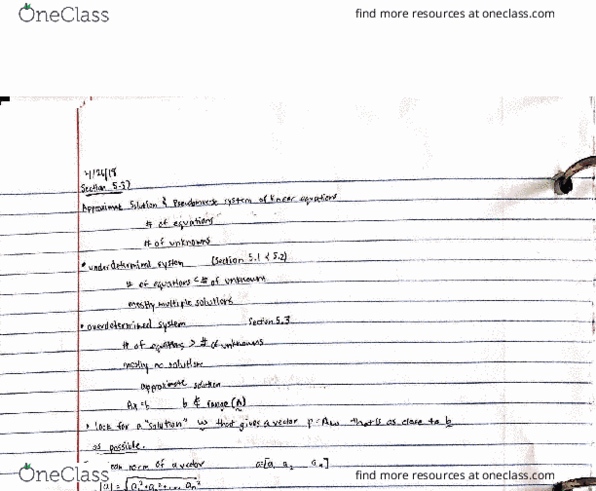 OneClass find more resources at oneclass.com
4/24/18
Section 5.3
Approximate Solution & Pseudoinverse system of linear equations
# of equations
# of unknowns
• underdetermined system (Section 5.1 & 5.2)
# of equations < # of unknown
mostly multiple solutions
• overdetermined system Section 5.3
# of equations > # of unknowns
mostly no solution
approximate solution
Ax=b b ∉ range(A)
• look for a "solution" w that gives a vector p=Aw that is as close to b
as possible.
norm of a vector a=[a₁ a₂ aₙ]
|a| = √a₁²+a₂²+... aₙ²
OneClass find more resources at oneclass.com